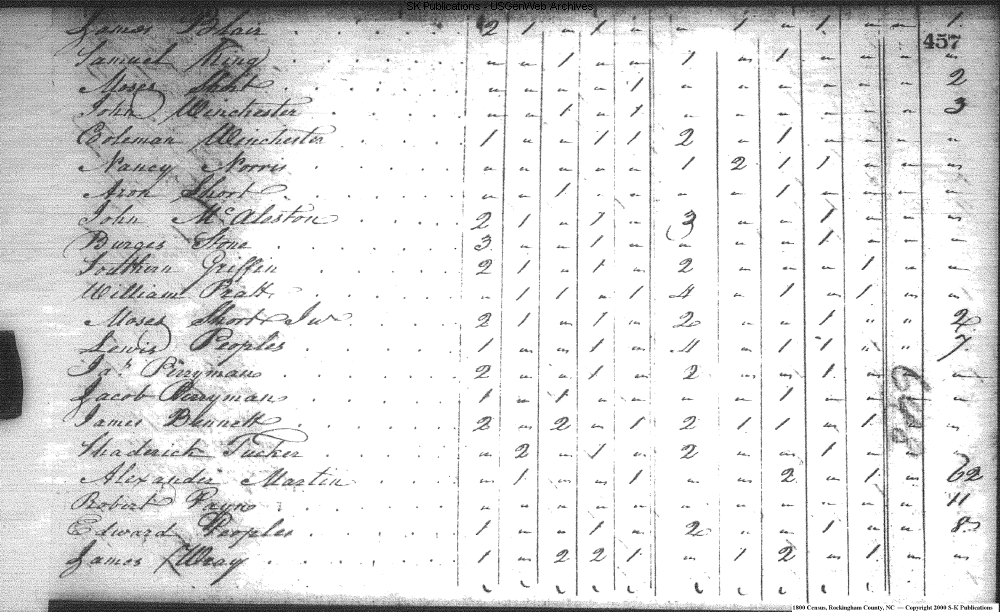 SK Publications - USGenWeb Archives
James Blair 2 1 " 1 " " 1 " 1 " " 1
457
Samuel King " " 1 " " 1 " 1 " " " "
Moses Short " " " " 1 " " " " " " 2
John Winchester " " 1 " 1 " " " " " " 3
Coleman Winchester 1 " " 1 1 2 " 1 " " " "
Nancy Norris " " " " " 1 2 1 1 " " "
Aron Short " " 1 " " " " 1 " " " "
John McAleston 2 1 " 1 " 3 " " 1 " " "
Burges Stone 3 " " 1 " " " " 1 " " "
Southern Griffin 2 1 " 1 " 2 " " " 1 " "
William Pratt " 1 1 " 1 4 " 1 " 1 " "
Moses Short Junr 2 1 " 1 " 2 " " 1 " " 2
Lewis Peoples 1 " " 1 " 4 " 1 1 " " 7
Jas. Perryman 2 " " 1 " 2 " " 1 " " "
Jacob Perryman 1 " 1 " " " " 1 " " " "
James Bennett 2 " 2 " 1 2 1 1 1 " 1 " "
Shaderick Tucker " 2 " 1 " 2 " " 1 " " "
Alexander Martin " 1 " " 1 " " 2 " 1 " 62
Robert Payne " " " " " " " " " " " 11
Edward Peoples 1 " " 1 " 2 " " 1 " " 8
James Wray 1 " 2 2 1 " 1 2 " 1 " "
1800 Census, Rockingham County, NC — Copyright 2000 S-K Publications